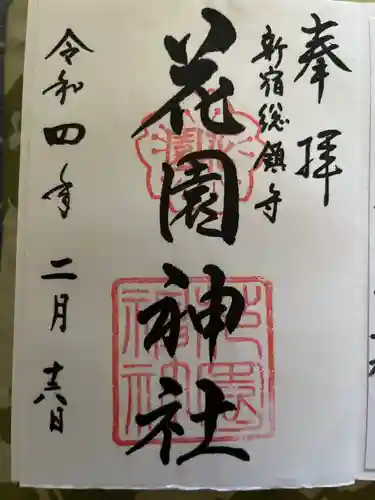 奉拝
新宿総鎮守
花園神社
花園神社
令和四年二月十六日